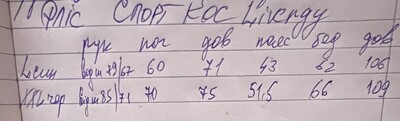 Фліс Спорт кос Livergy
рук ног дов пояс бед дов
Lсин від ш 79/67 60 71 43 62 106
XXLчор від ш 85/71 70 75 51,5 66 109